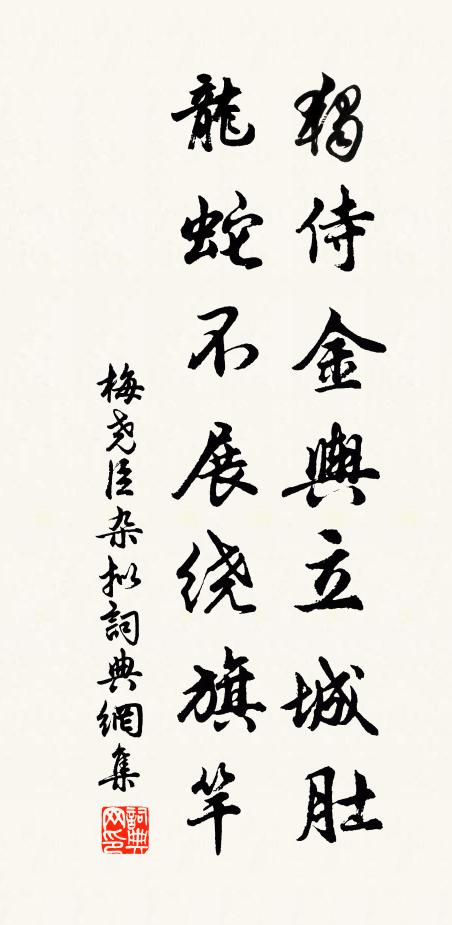 獨侍金輿立城肚
龍蛇不展绕旗竿
梅尧臣杂拟詞典網集
詞典网印